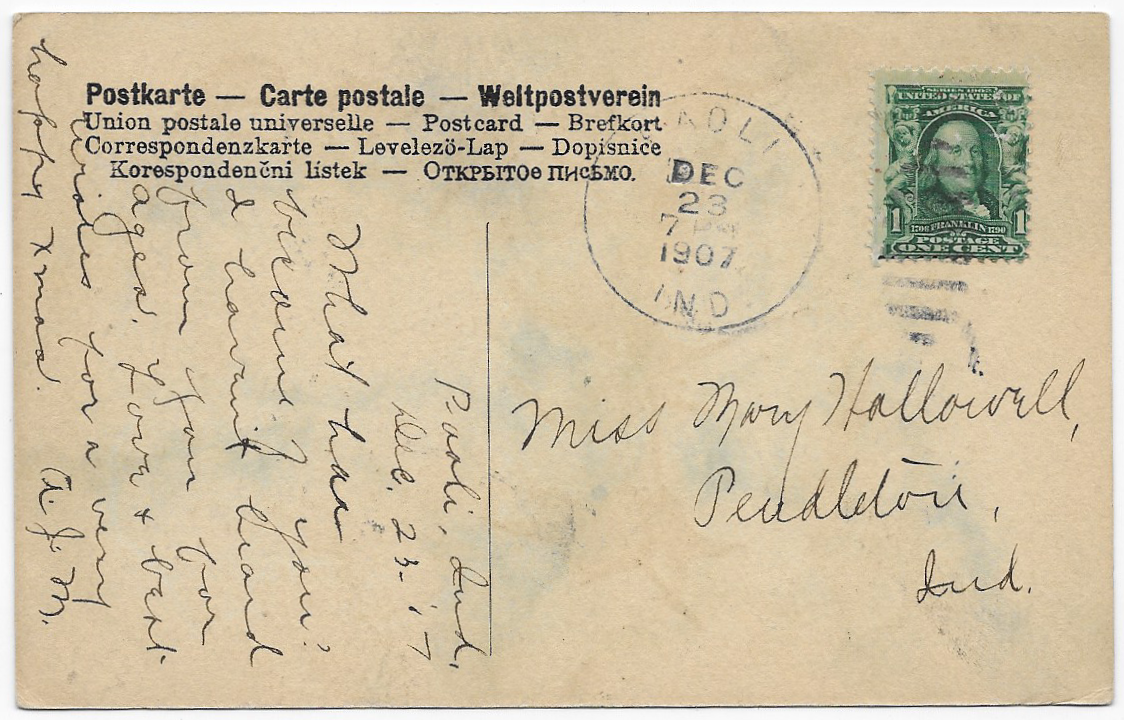 Postkarte — Carte postale — Weltpostverein
Union postale universelle — Postcard — Brefkort
Correspondenzkarte — Levelező-Lap — Dopisnice
Korespondenčni lístek — Открытое письмо.
PAOLI
DEC
23
7 PM
1907
IND
SERIES 1902
UNITED STATES OF
AMERICA
1 1
1706 FRANKLIN 1790
POSTAGE
ONE CENT
Paoli, Ind.
Dec. 23-'7
What has
became you?
I haven't heard
from you for
ages. Love & best
wishes for a very
happy Xmas. A. J. M.
Miss Mary Hallowell,
Pendleton,
Ind.